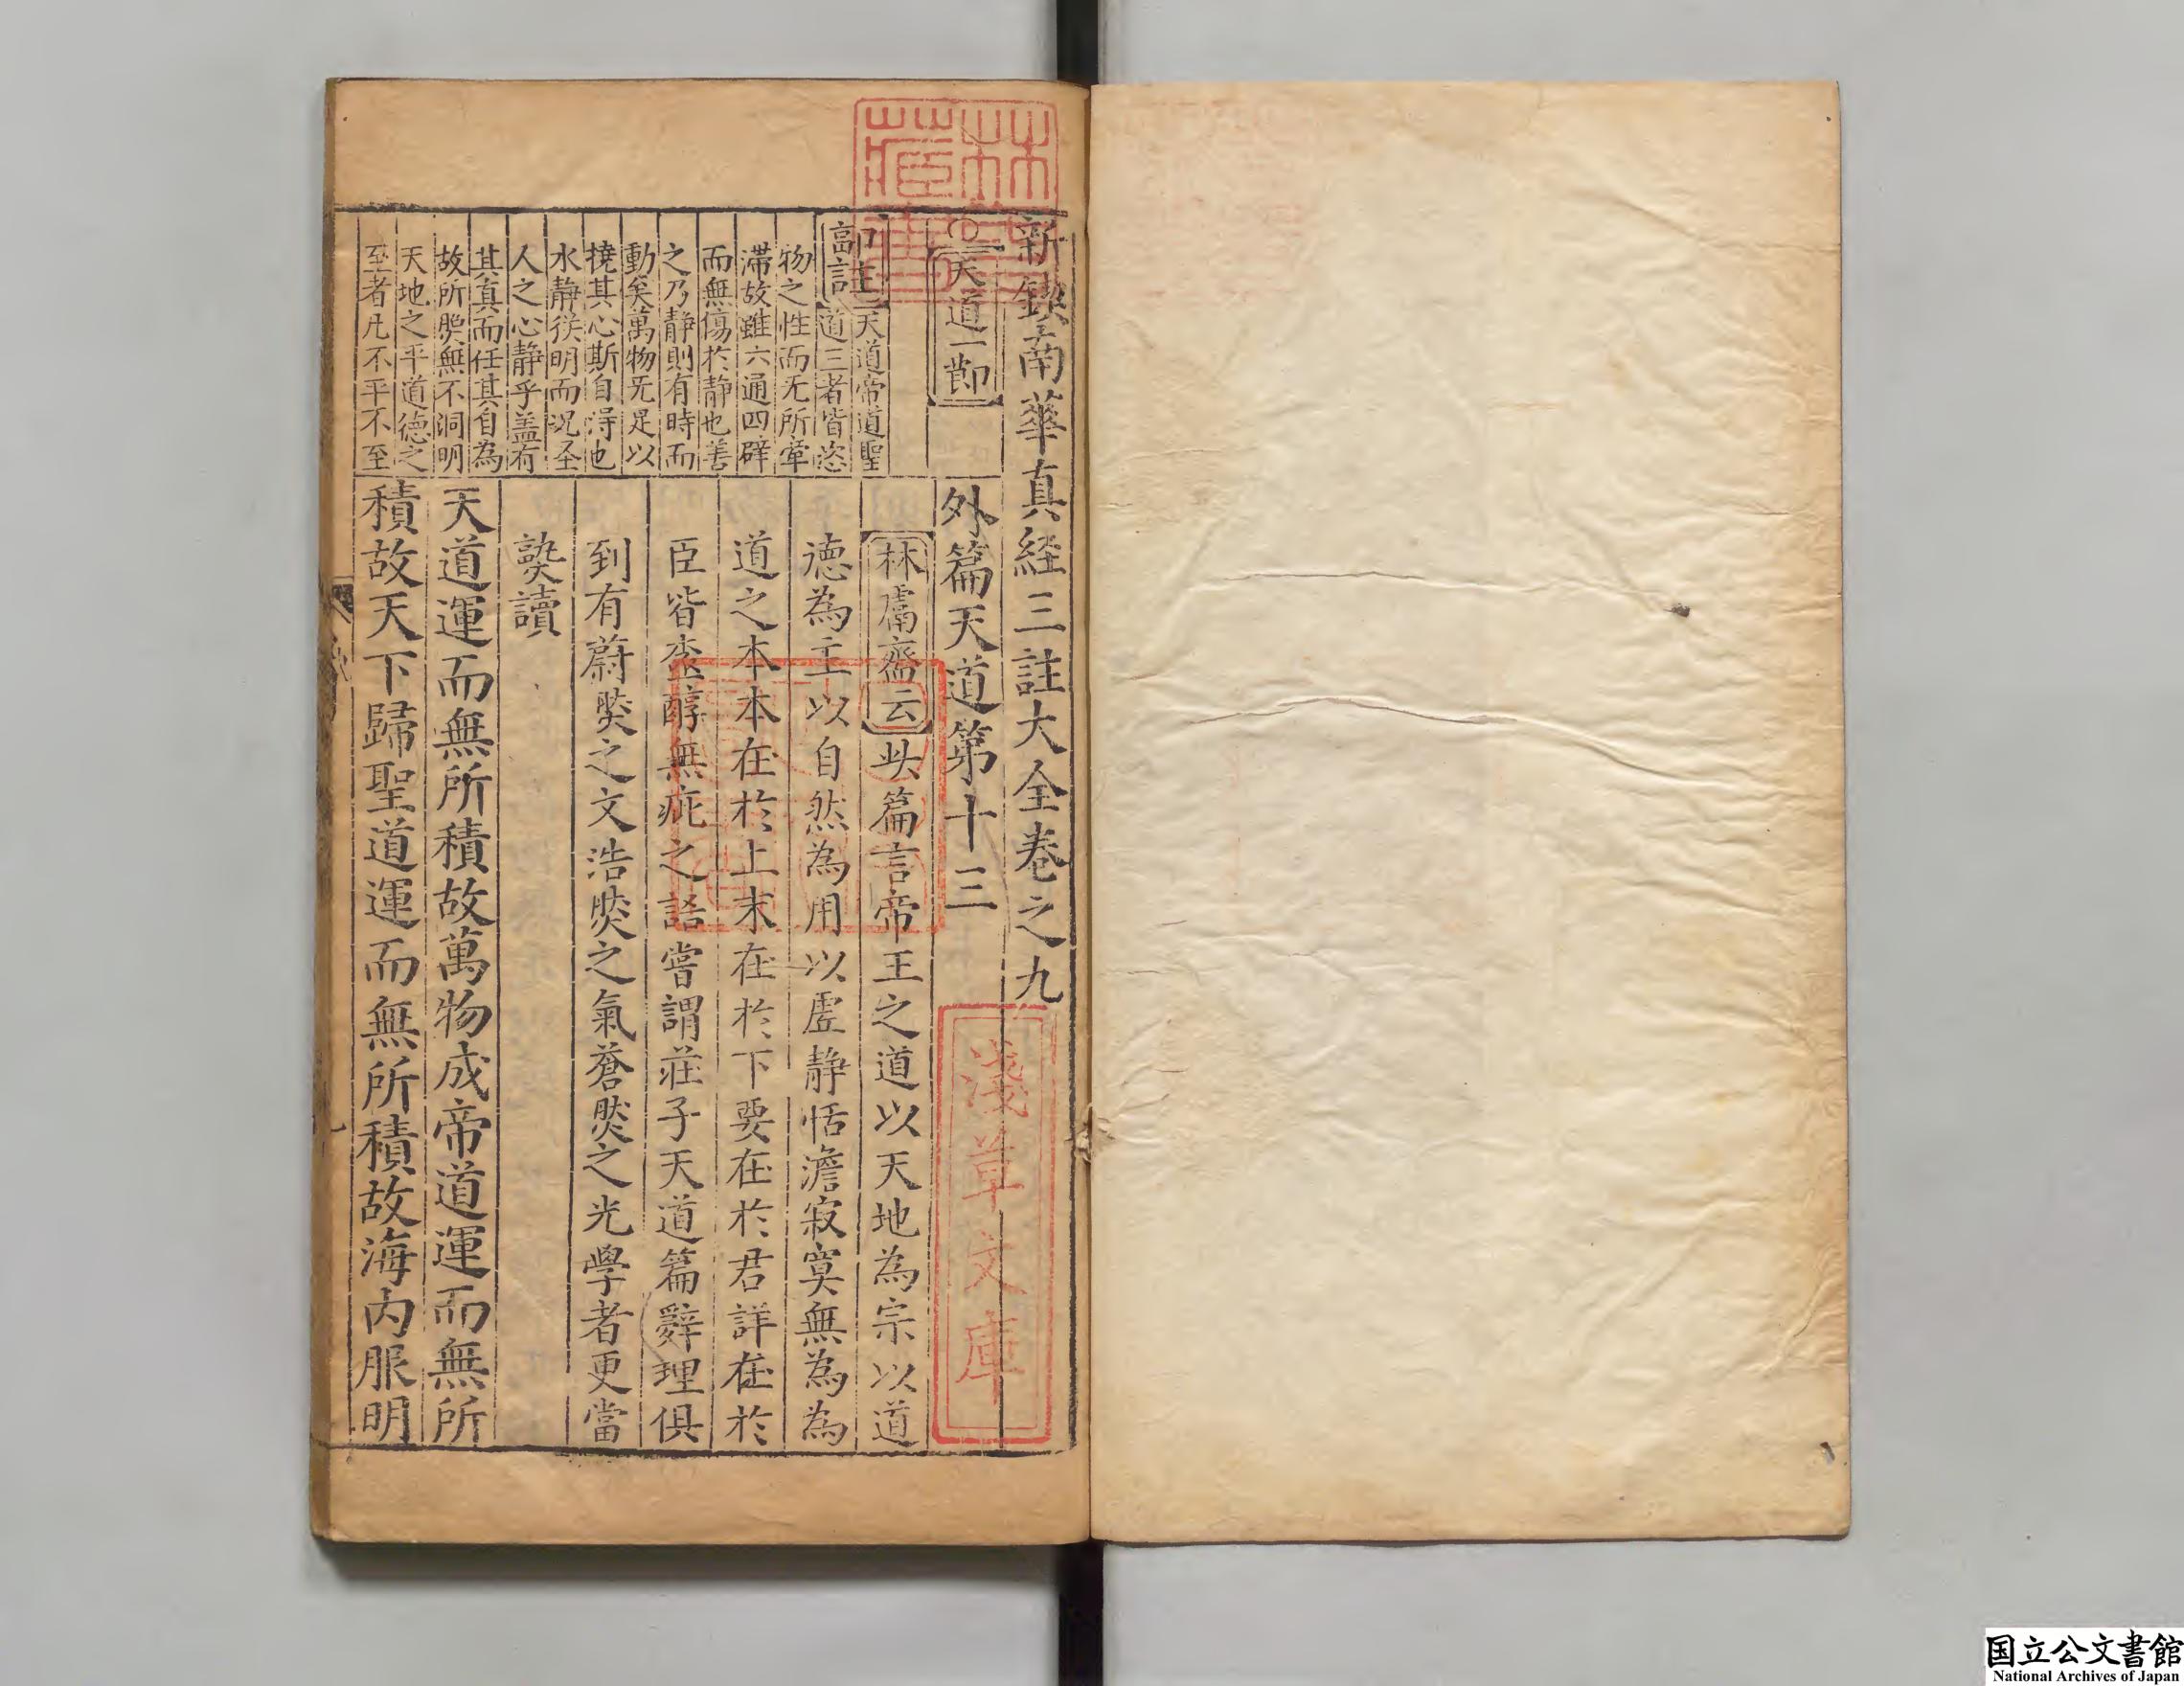 新鍥南華真経三註大全卷之九
外篇天道第十三
林鬳齋云此篇言帝王之道以天地為宗以道
德為主以自然為用以虛静恬澹寂寞無為為
道之本本在於上末在於下要在於君詳在於
臣皆至醇無疵之語嘗謂莊子天道篇辭理俱
到有蔚然之文浩然之氣蒼然之光學者更當
熟讀
天道運而無所積故萬物成帝道運而無所
積故天下歸聖道運而無所積故海内服明
○天道一節
天道帝道聖
道三者皆恣
物之性而无所牽
滯故雖六通四辟
而無傷於静也善
之乃静則有時而
動矣萬物无足以
撓其心斯自得也
水静猶明而况圣
人之心静乎盖有
其真而任其自為
故所照無不洞明
天地之平道德之
至者凡不平不至
林氏藏書
淺草文庫
国立公文書館
National Archives of Japan